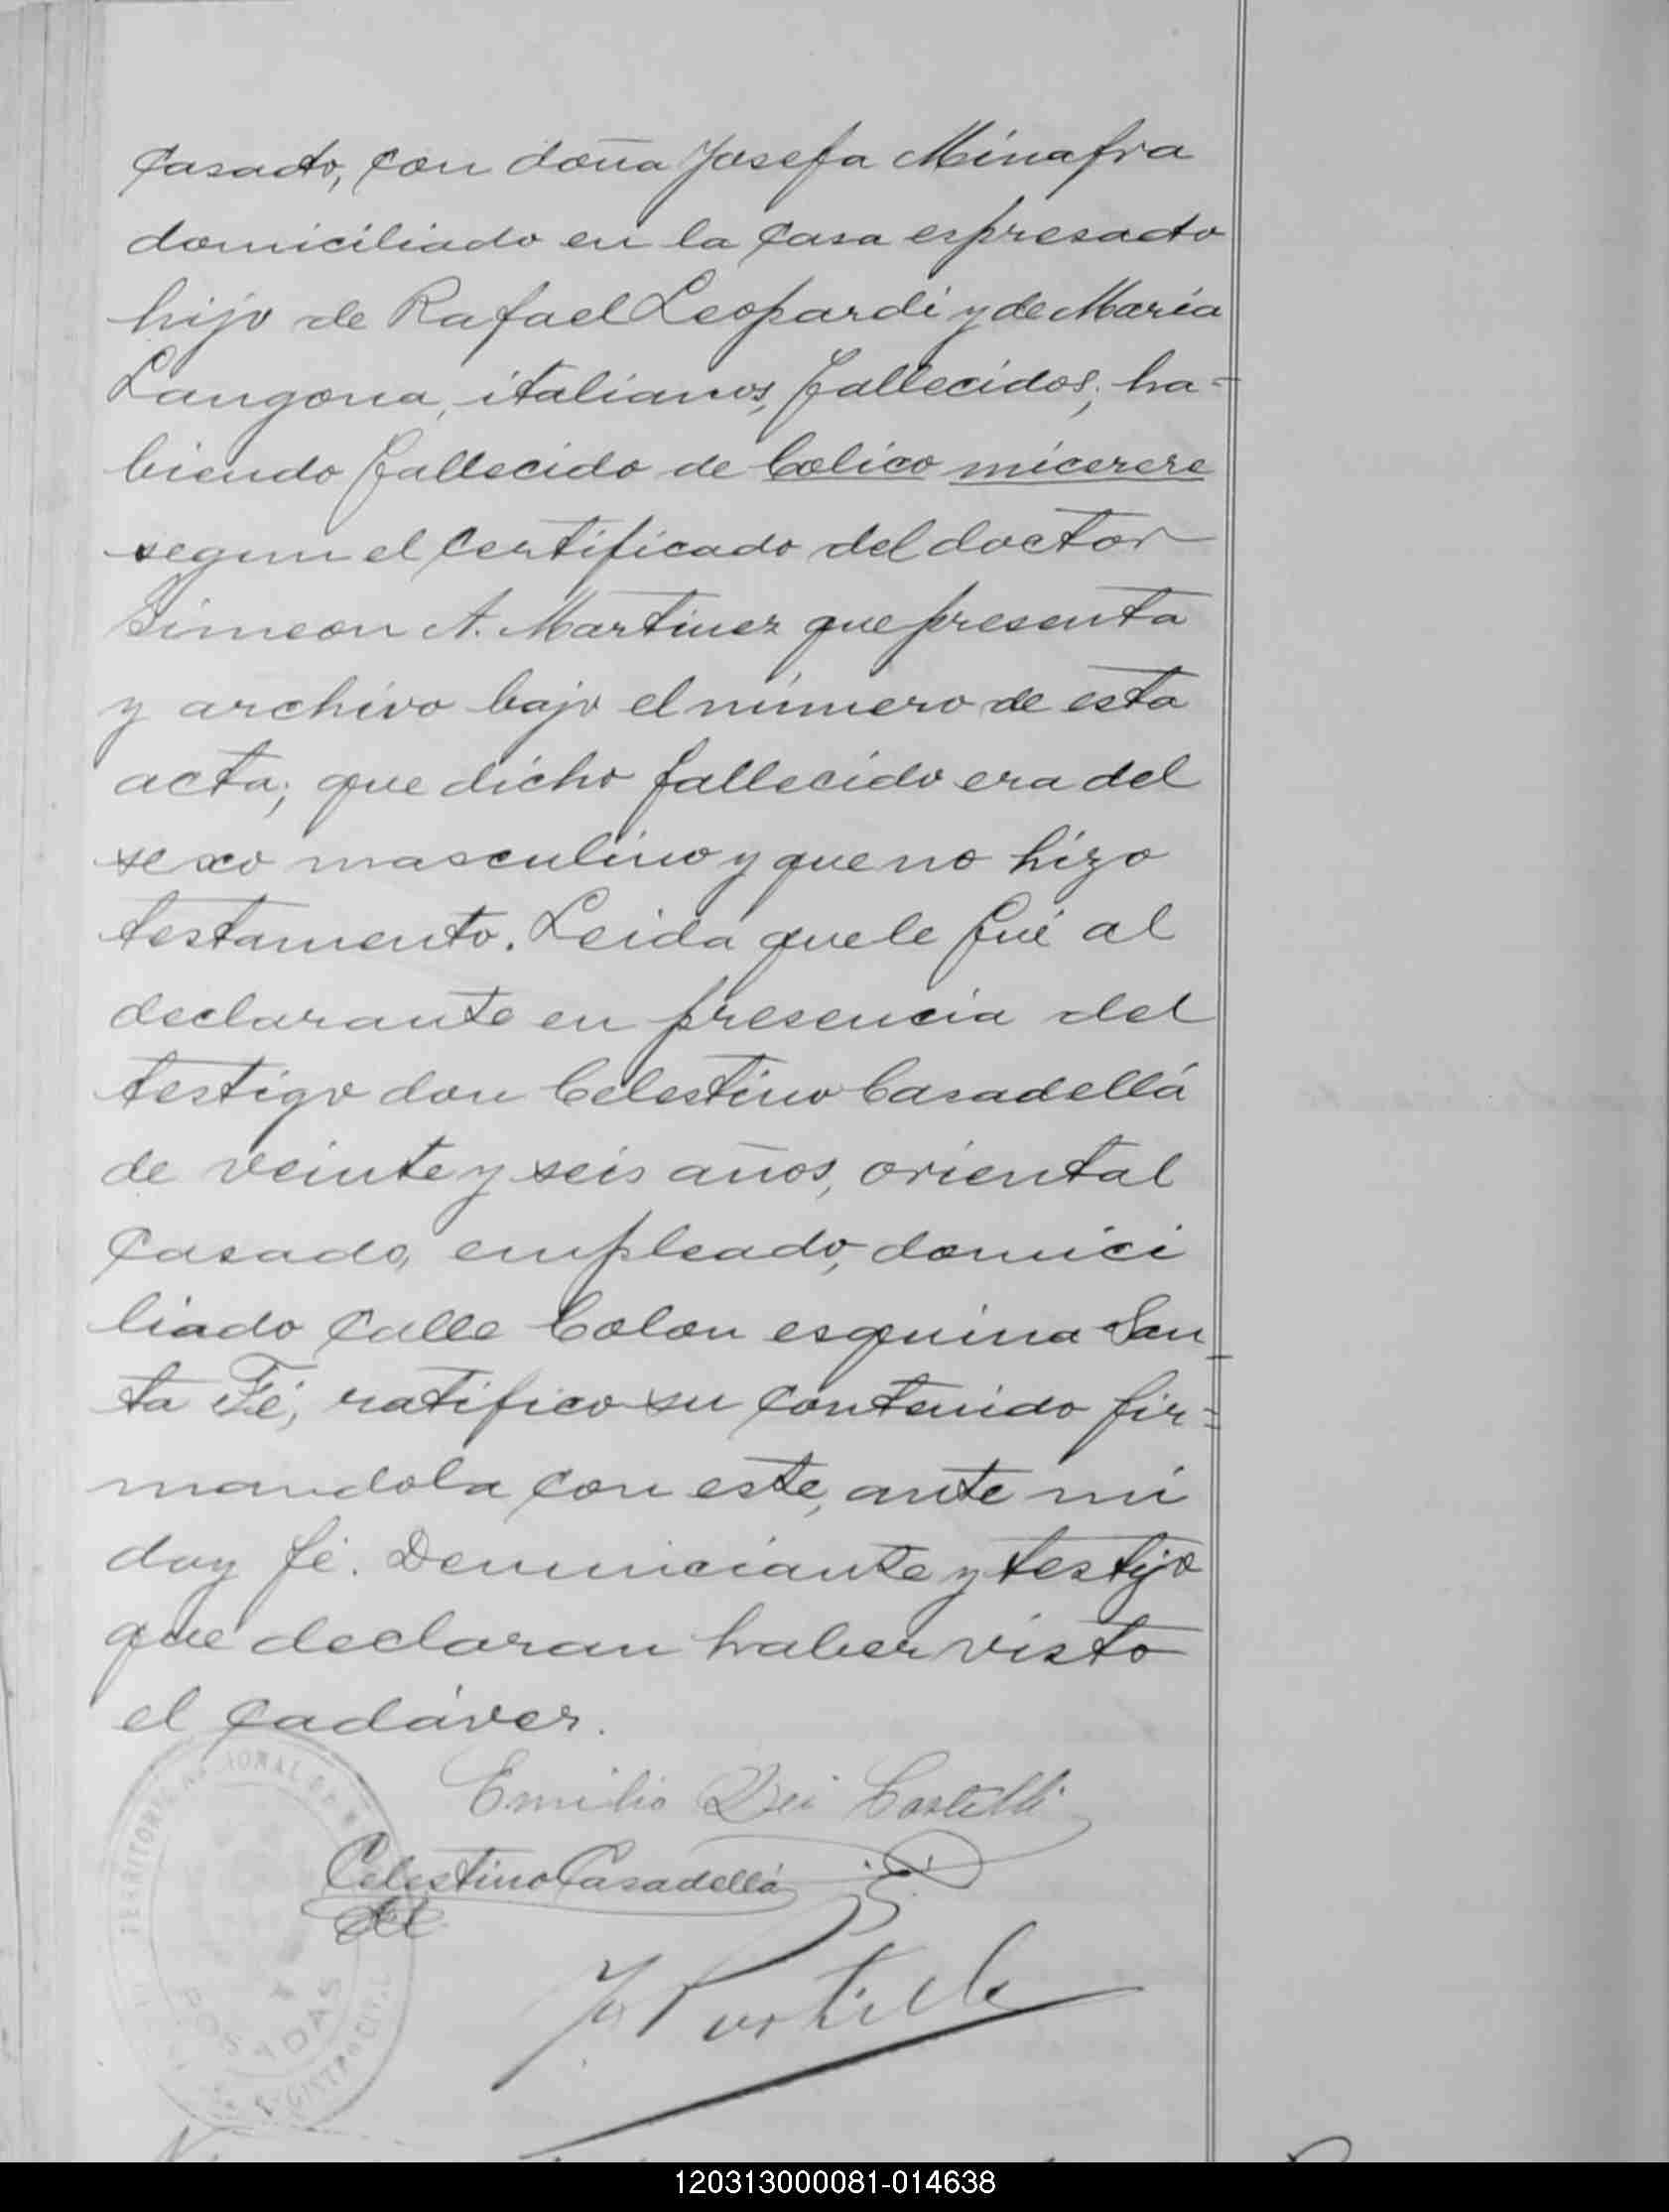 casado, con doña Josefa Minafra
domiciliado en la casa espresado
hijo de Rafael Leopardi y de Maria
Langona, italianos, fallecidos; ha-
biendo fallecido de Colico micerere
segun el certificado del doctor
Simeon A. Martinez que presenta
y archivo bajo el número de esta
acta; que dicho fallecido era del
sexo masculino y que no hizo
testamento. Leida que le fué al
declarante en presencia del
testigo don Celestino Casadellá
de veinte y seis años, oriental
casado, empleado, domici
liado calle Colon esquina San_
ta Fé, ratifico su contenido fir=
mandola con este, ante mi
doy fé. Denunciante y testigo
que declaran haber visto
el cadáver.
Emilio Dei Castelli
Celestino Casadellá
TERRITORIO NACIONAL DE
POSADAS
REGISTRO CIVIL
120313000081-014638